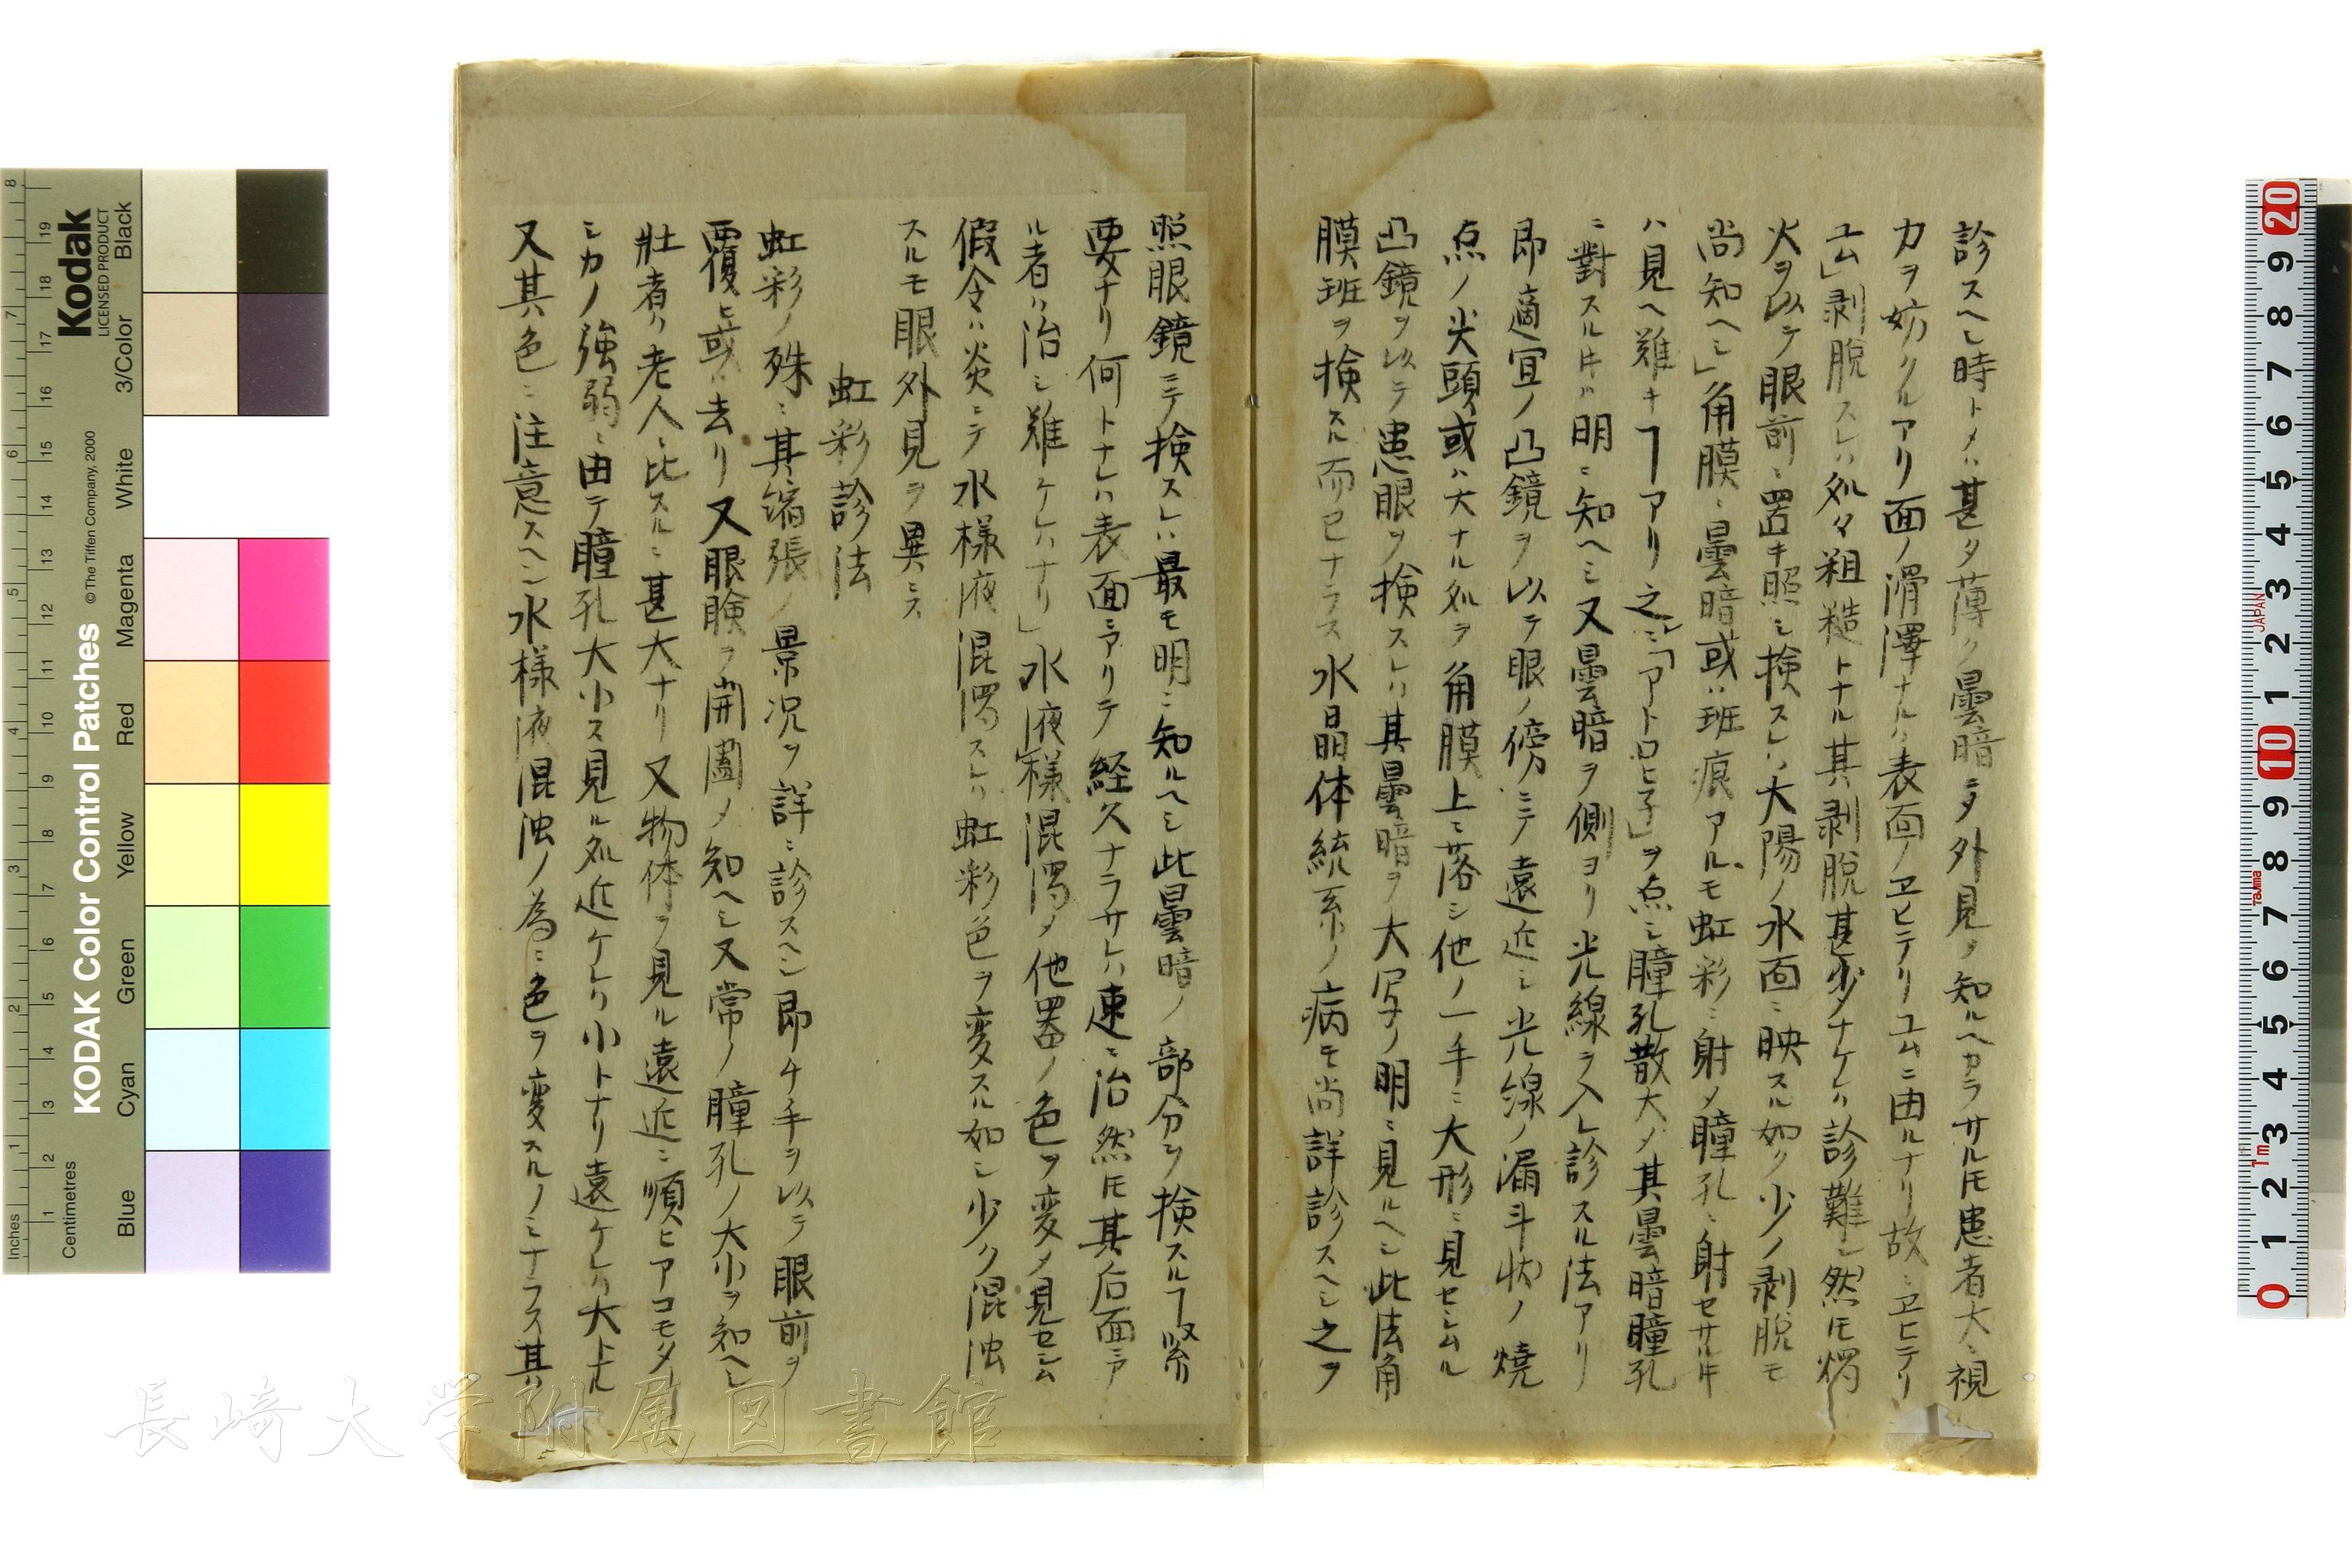 診スヘシ時トメハ甚タ薄ク曇暗ニメ外見ヲ知ルヘカラサル𪜈患者大ニ視
力ヲ妨クルアリ面ノ滑澤ナルハ表面ノヱヒテリユムニ由ルナリ故ニヱヒテリ
ユム」剥脱スレハ処々粗糙トナル其剥脱甚少ナケレハ診難シ然𪜈燭
火ヲ以テ眼前ニ置キ照シ検スレハ大陽ノ水面ニ映スル如ク少ノ剥脱モ
尚知ヘシ」角膜ニ曇暗或ハ班痕アルモ虹彩ニ射メ瞳孔ニ射セサル𪜈
ハ見ヘ難キヿアリ之レニ「アトロヒ子」ヲ点シ瞳孔散大メ其曇暗瞳孔
ニ對スル𪜈ハ明ニ知ヘシ又曇暗ヲ側ヨリ光線ヲ入レ診スル法アリ
即適宜ノ凸鏡ヲ以テ眼ノ傍ニテ遠近シ光線ノ漏斗状ノ燒
点ノ尖頭或ハ大ナル処ヲ角膜上ニ落シ他ノ一手ニ大形ニ見セシムル
凸鏡ヲ以テ患眼ヲ検スレハ其曇暗ヲ大写ノ明ニ見ルヘシ此法角
膜班ヲ検スル而已ナラス水晶体統系ノ病モ尚詳診スヘシ之ヲ
照眼鏡ニテ検スレハ最モ明ニ知ルヘシ此曇暗ノ部分ヲ検スルヿ緊
要ナリ何トナレハ表面ニアリテ経久ナラサレハ速ニ治然𪜈其后面ニア
ル者ハ治シ難ケレハナリ」水液様混濁メ他器ノ色ヲ変メ見セシム
假令ハ炎ニテ水様液混濁スレハ虹彩色ヲ変スル如シ少ク混浊
スルモ眼外見ヲ異ニス
虹彩診法
虹彩ノ殊ニ其縮張ノ景况ヲ詳ニ診スヘシ即チ手ヲ以テ眼前ヲ
覆ヒ或ハ去リ又眼瞼ヲ開闔メ知ヘシ又常ノ瞳孔ノ大小ヲ知ヘシ
壮者ハ老人ニ比スルニ甚大ナリ又物体ヲ見ル遠近ニ順ヒアコモダー
シカノ強弱ニ由テ瞳孔大小ス見ル処近ケレハ小トナリ遠ケレハ大トナル
又其色ニ注意スヘシ水様液混浊ノ為ニ色ヲ変スルノミナラス其
長崎大学附属図書館
Kodak
LICENSED PRODUCT
KODAK Color Control Patches
© The Tiffen Company, 2000
Inches
Centimetres
Blue
Cyan
Green
Yellow
Red
Magenta
White
3/Color
Black
JAPAN
Tajima